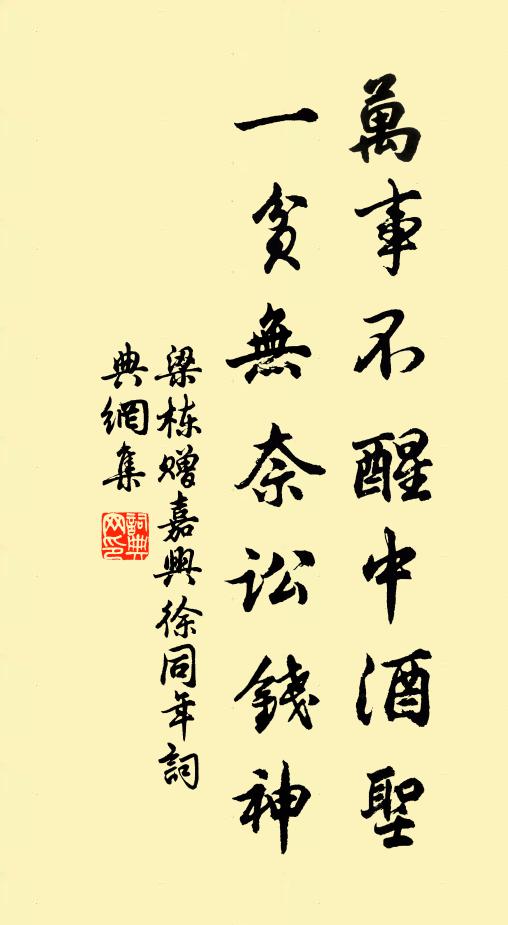 萬事不醒中酒聖
一貧無奈訟錢神
梁栋赠嘉興徐同年詞
典網集
詞典
网印